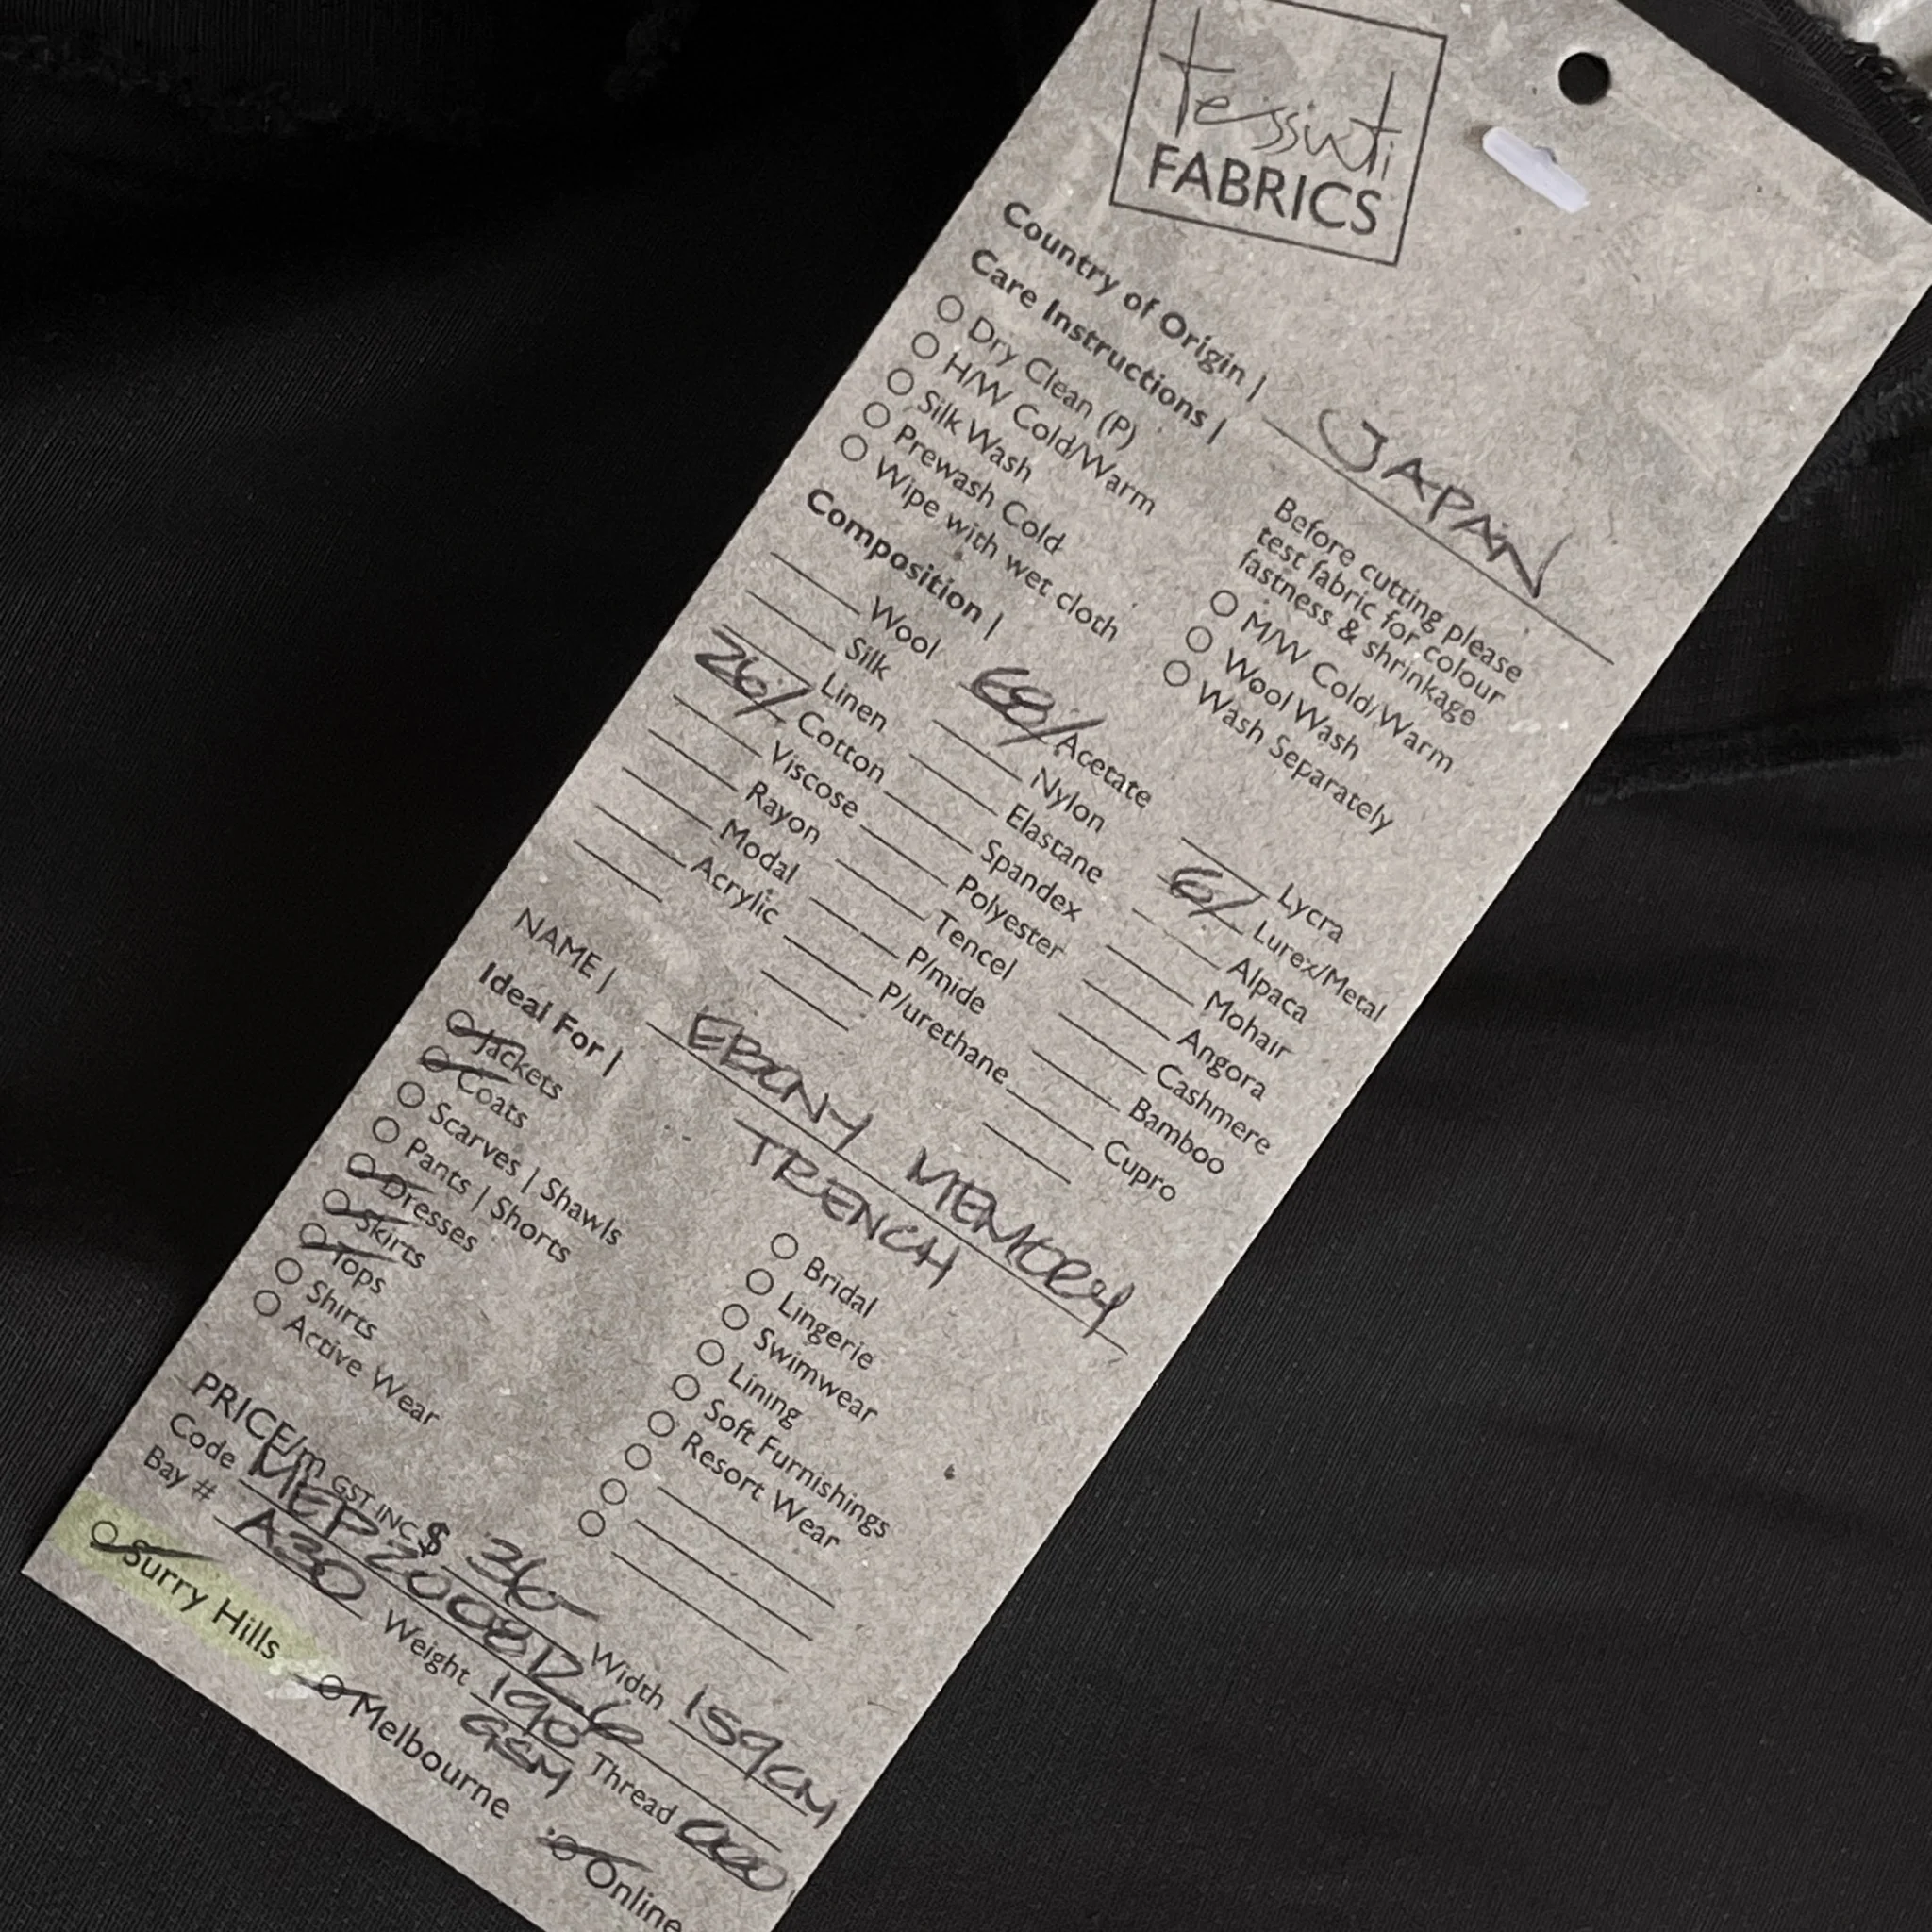 tessuti
FABRICS
Country of Origin | JAPAN
Care Instructions |
Before cutting please
test fabric for colour
fastness & shrinkage
Dry Clean (P)
H/W Cold/Warm
Silk Wash
Prewash Cold
Wipe with wet cloth
M/W Cold/Warm
Wool Wash
Wash Separately
Composition |
Wool
Silk
Linen
26% Cotton
Viscose
Rayon
Modal
Acrylic
68% Acetate
Nylon
Elastane
Spandex
Polyester
Tencel
P/mide
P/urethane
Lycra
6% Lurex/Metal
Alpaca
Mohair
Angora
Cashmere
Bamboo
Cupro
NAME | EBONY MEMORY
TRENCH
Ideal For |
Jackets
Coats
Scarves | Shawls
Pants | Shorts
Dresses
Skirts
Tops
Shirts
Active Wear
Bridal
Lingerie
Swimwear
Lining
Soft Furnishings
Resort Wear
PRICE/m GST INC $ 36- Width 159CM
Code MEP200812.6
Bay # A30 Weight 190 GSM Thread 000
Surry Hills Melbourne Online